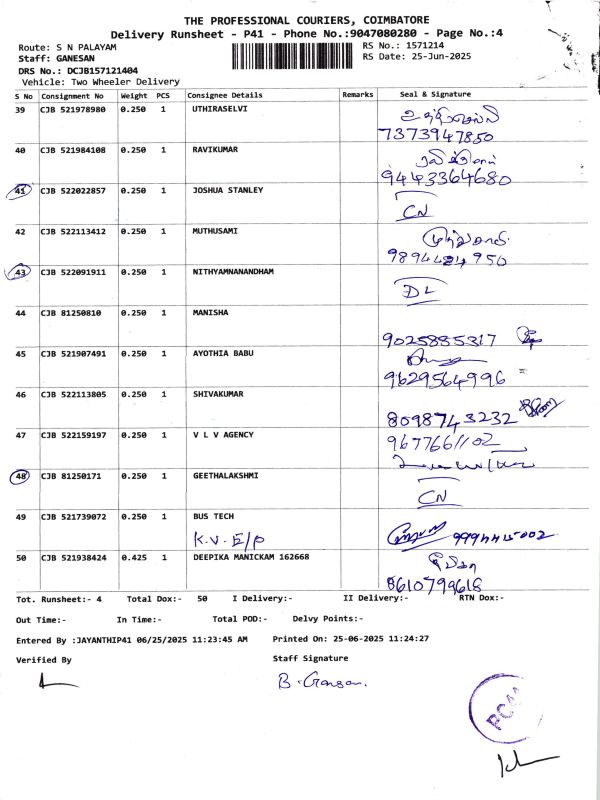 THE PROFESSIONAL COURIERS, COIMBATORE
Delivery Runsheet - P41 - Phone No.:9047080280 - Page No.:4
Route: S N PALAYAM
RS No.: 1571214
Staff: GANESAN
RS Date: 25-Jun-2025
DRS No.: DCJB157121404
Vehicle: Two Wheeler Delivery
S No Consignment No Weight PCS Consignee Details Remarks Seal & Signature
39 CJB 521978980 0.250 1 UTHIRASELVI
7373947850
40 CJB 521984108 0.250 1 RAVIKUMAR
9443364680
41 CJB 522022857 0.250 1 JOSHUA STANLEY
CN
42 CJB 522113412 0.250 1 MUTHUSAMI
43 CJB 522091911 0.250 1 NITHYAMNANANDHAM
DL
44 CJB 81250810 0.250 1 MANISHA
9025885317
45 CJB 521907491 0.250 1 AYOTHIA BABU
9629564996
46 CJB 522113805 0.250 1 SHIVAKUMAR
8098743232
47 CJB 522159197 0.250 1 V L V AGENCY
9677661102
48 CJB 81250171 0.250 1 GEETHALAKSHMI
CN
49 CJB 521739072 0.250 1 BUS TECH
K.V. E/P
50 CJB 521938424 0.425 1 DEEPIKA MANICKAM 162668
8610799618
Tot. Runsheet:- 4 Total Dox:- 50 I Delivery:- II Delivery:- RTN Dox:-
Out Time:- In Time:- Total POD:- Delvy Points:-
Entered By :JAYANTHIP41 06/25/2025 11:23:45 AM Printed On: 25-06-2025 11:24:27
Verified By Staff Signature
B. Ganesan.